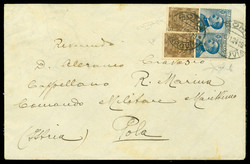 Reverendo
D. Alfonso
Cappellano R. Marina
Comando Militare Marittimo
(Istria) Pola